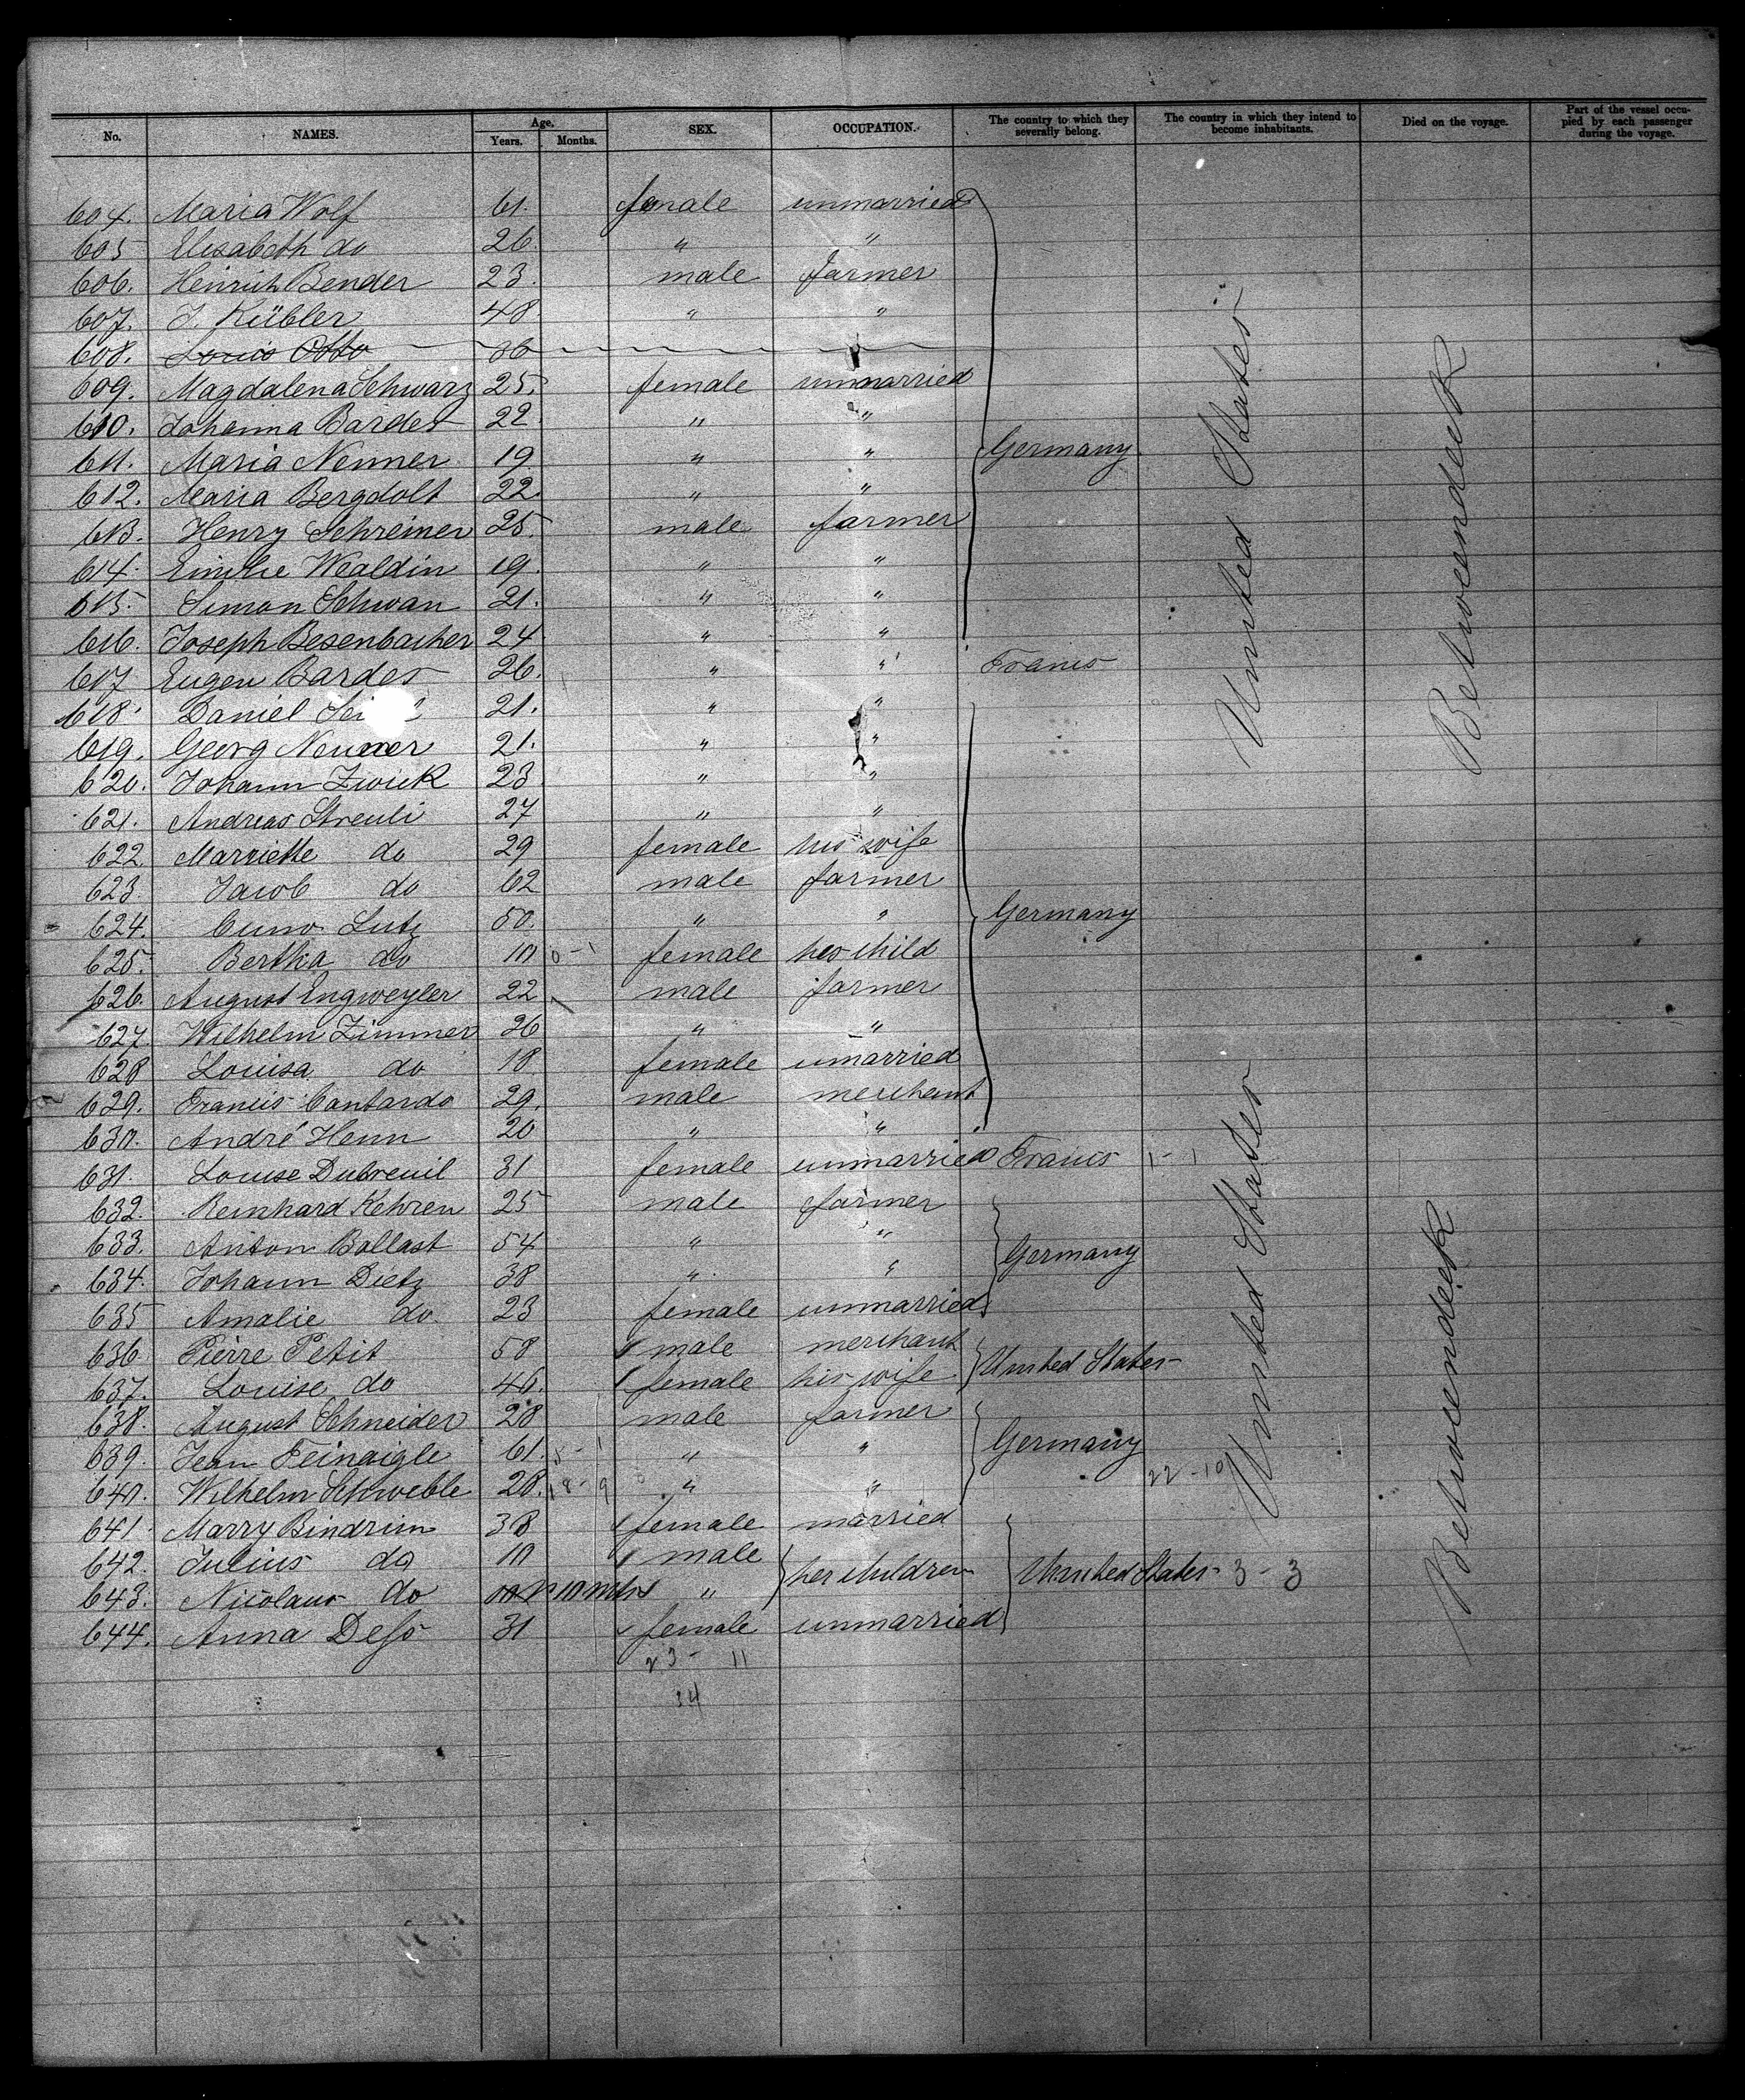 No. NAMES. Age. Years. Months. SEX. OCCUPATION. The country to which they severally belong. The country in which they intend to become inhabitants. Died on the voyage. Part of the vessel occupied by each passenger during the voyage.
604. Maria Wolf 61. female unmarried
605 Elisabeth do 26. " "
606. Heinrich Bender 23. male farmer
607. J. Kübler 48 " "
608. Louis Otto 36
609. Magdalena Schwarz 25. female unmarried
610. Johanna Bardes 22 " "
611. Maria Nenner 19 " " Germany
612. Maria Bergdolt 22. " "
613. Henry Schreiner 25. male farmer
614. Emilie Wealdin 19. " "
615. Simon Schwan 21. " "
616. Joseph Besenbacher 24 " "
617 Eugen Bardes 26. " " France
618. Daniel 21. " "
619. Georg Neumer 21. " "
620. Johann Zwick 23 " "
621. Andreas Streuli 27 " "
622 Marriette do 29 female his wife
623. Jacob do 62 male farmer
624. Cuno Lutz 50. " " Germany
625. Bertha do 10 0 - 1 female her child
626. August Engweyler 22 male farmer
627. Wilhelm Zimmer 26 " "
628 Louisa do 18 female unmarried
629. Francis Cantardo 29. male merchant
630. André Henn 20 " "
631. Louise Dubreuil 31 female unmarried France 1 - 1
632. Reinhard Kehren 25 male farmer
633. Anton Ballast 54 " "
634. Johann Dietz 38 " " Germany
635 Amalie do. 23 female unmarried
636 Pierre Petit 58 male merchant
637. Louise do 46. female his wife United States
638. August Schneider 28 male farmer
639. Jean Feinaigle 61. " " Germany
640. Wilhelm Schweble 28. 18 - 9 " " 22 - 10
641 Marry Bindrim 38 female married
642. Julius do 10 male her children
643. Nicolaus do 10 mths " United States 3 - 3
644. Anna Deso 31 female unmarried
23 - 11
34
United States
United States
Betweendeck
Betweendeck